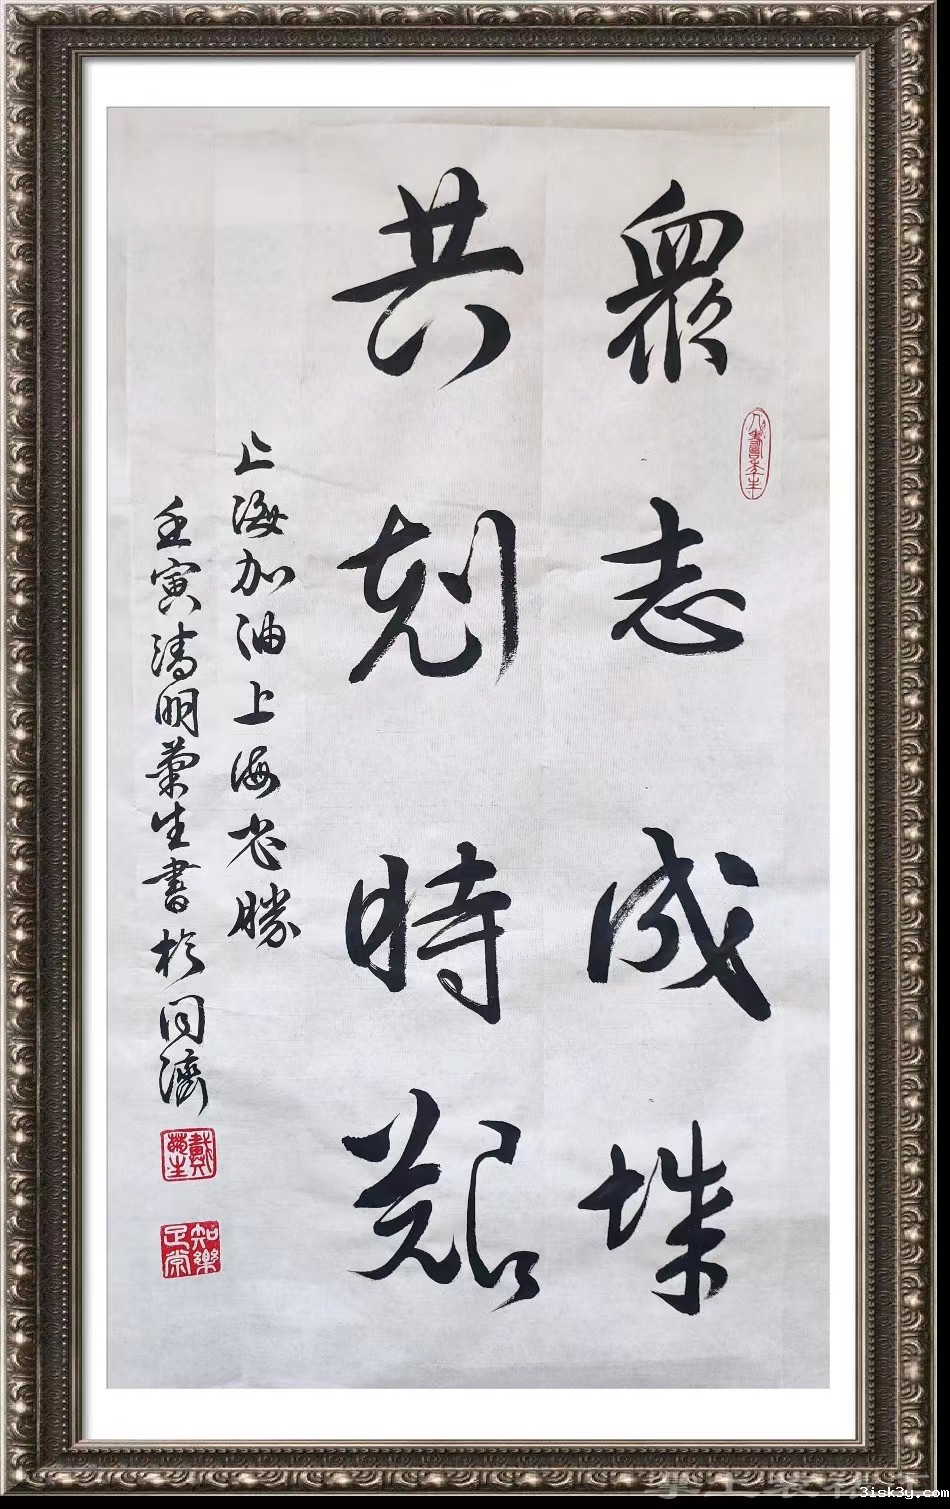 眾志成城
共剋時艱
上海加油上海必勝
壬寅清明菊生書於同濟
知足常樂
3isk3y.com